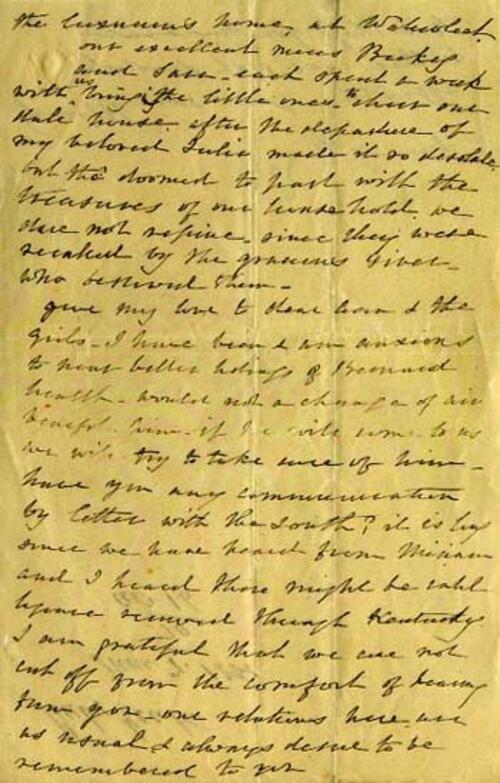 the luxurious home, at
our excellent niece Becky
and Sara - each spent a week
with us, bring'g the little ones - to cheer our
little house after the departure of
my beloved Julia made it so desolate.
but tho' doomed to part with the
treasures of our household, we
dare not repine - since they were
recalled by the gracious Giver -
who bestowed them -
give my love to dear & the
girls - I have been & am anxious
to hear better tidings of Bernard
health - would not a change of air
benefit him - if he will come to us
we will try to take care of him -
have you any communication
by letter with the South? it is long
since we have heard from Miriam
and I heard there might be
removed through Kentucky
I am grateful that we are not
cut off from the comfort of hearing
from you - our relatives here are
as usual & always desire to be
remembered to you